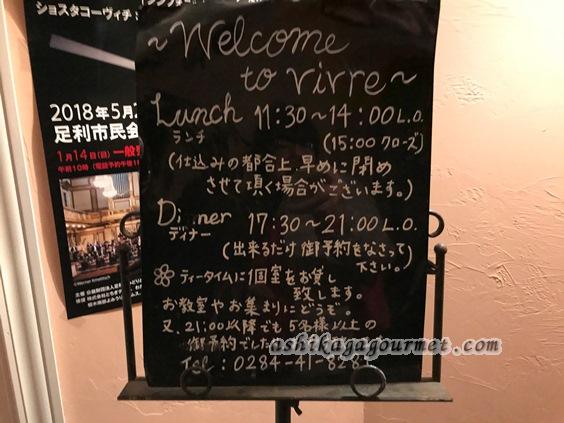 ショスタコーヴィチ
2018年5月2
足利市民会
1月14日(日)一般
~Welcome
to vivre~
Lunch 11:30~14:00 L.O.
ランチ (15:00 クローズ)
(仕込みの都合上、早めに閉め
させて頂く場合がございます。)
Di ner 17:30~21:00 L.O.
ディナー (出来るだけ御予約をなさって
下さい。)
ティータイムに個室をお貸し
致します。
お教室やお集まりにどうぞ。
又、21:00以降でも5名様以上の
御予約でした
Tel:0284-41-828
ashikagagourmet.com